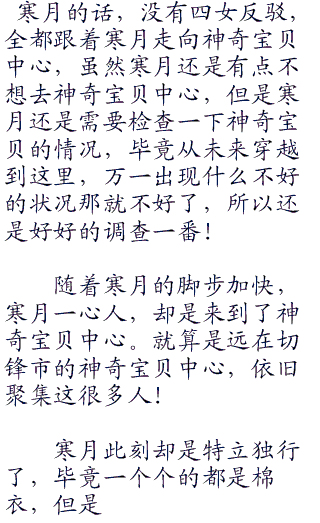 寒月的话，没有四女反驳，
全都跟着寒月走向神奇宝贝
中心，虽然寒月还是有点不
想去神奇宝贝中心，但是寒
月还是需要检查一下神奇宝
贝的情况，毕竟从未来穿越
到这里，万一出现什么不好
的状况那就不好了，所以还
是好好的调查一番！
随着寒月的脚步加快，
寒月一心人，却是来到了神
奇宝贝中心。就算是远在切
锋市的神奇宝贝中心，依旧
聚集这很多人！
寒月此刻却是特立独行
了，毕竟一个个的都是棉
衣，但是